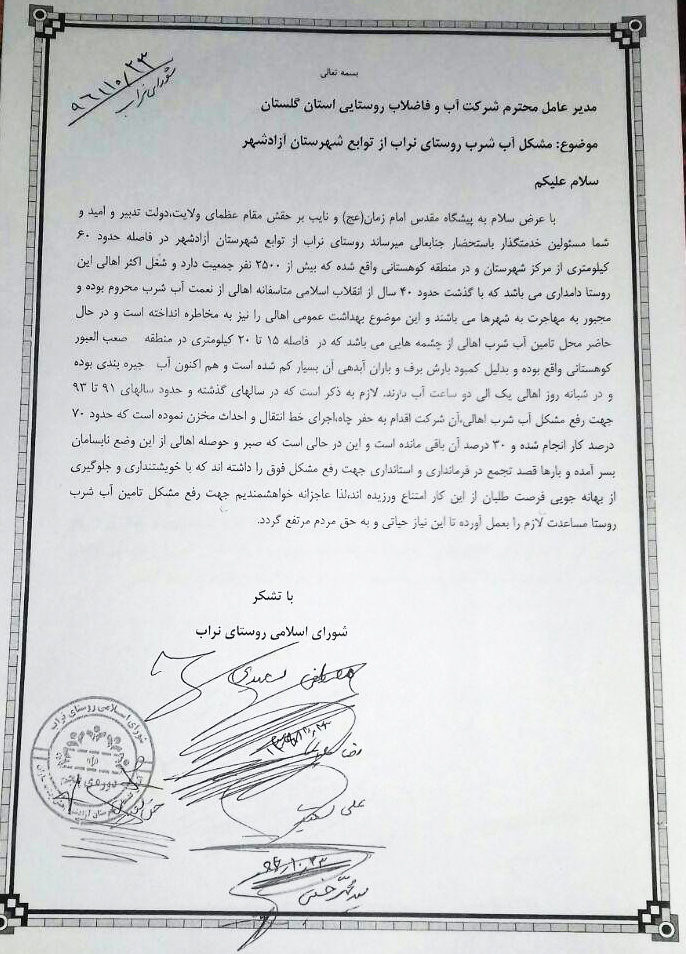 بسمه تعالی
۹۶/۱۰/۲۳
شورای نراب
مدیر عامل محترم شرکت آب و فاضلاب روستایی استان گلستان
موضوع: مشکل آب شرب روستای نراب از توابع شهرستان آزادشهر
سلام علیکم
با عرض سلام به پیشگاه مقدس امام زمان(عج) و نایب بر حقش مقام عظمای ولایت،دولت تدبیر و امید و
شما مسئولین خدمتگذار باستحضار جنابعالی میرساند روستای نراب از توابع شهرستان آزادشهر در فاصله حدود ۶۰
کیلومتری از مرکز شهرستان و در منطقه کوهستانی واقع شده که بیش از ۲۵۰۰ نفر جمعیت دارد و شغل اکثر اهالی این
روستا دامداری می باشد که با گذشت حدود ۴۰ سال از انقلاب اسلامی متاسفانه اهالی از نعمت آب شرب محروم بوده و
مجبور به مهاجرت به شهرها می باشند و این موضوع بهداشت عمومی اهالی را نیز به مخاطره انداخته است و در حال
حاضر محل تامین آب شرب اهالی از چشمه هایی می باشد که در فاصله ۱۵ تا ۲۰ کیلومتری در منطقه صعب العبور
کوهستانی واقع بوده و بدلیل کمبود بارش برف و باران آبدهی آن بسیار کم شده است و هم اکنون آب جیره بندی بوده
و در شبانه روز اهالی یک الی دو ساعت آب دارند. لازم به ذکر است که در سالهای گذشته و حدود سالهای ۹۱ تا ۹۳
جهت رفع مشکل آب شرب اهالی،آن شرکت اقدام به حفر چاه،اجرای خط انتقال و احداث مخزن نموده است که حدود ۷۰
درصد کار انجام شده و ۳۰ درصد آن باقی مانده است و این در حالی است که صبر و حوصله اهالی از این وضع نابسامان
بسر آمده و بارها قصد تجمع در فرمانداری و استانداری جهت رفع مشکل فوق را داشته اند که با خویشتنداری و جلوگیری
از بهانه جویی فرصت طلبان از این کار امتناع ورزیده اند،لذا عاجزانه خواهشمندیم جهت رفع مشکل تامین آب شرب
روستا مساعدت لازم را بعمل آورده تا این نیاز حیاتی و به حق مردم مرتفع گردد.
با تشکر
شورای اسلامی روستای نراب
مصطفی سعیدی
رضا
علی
شورای اسلامی روستای نراب